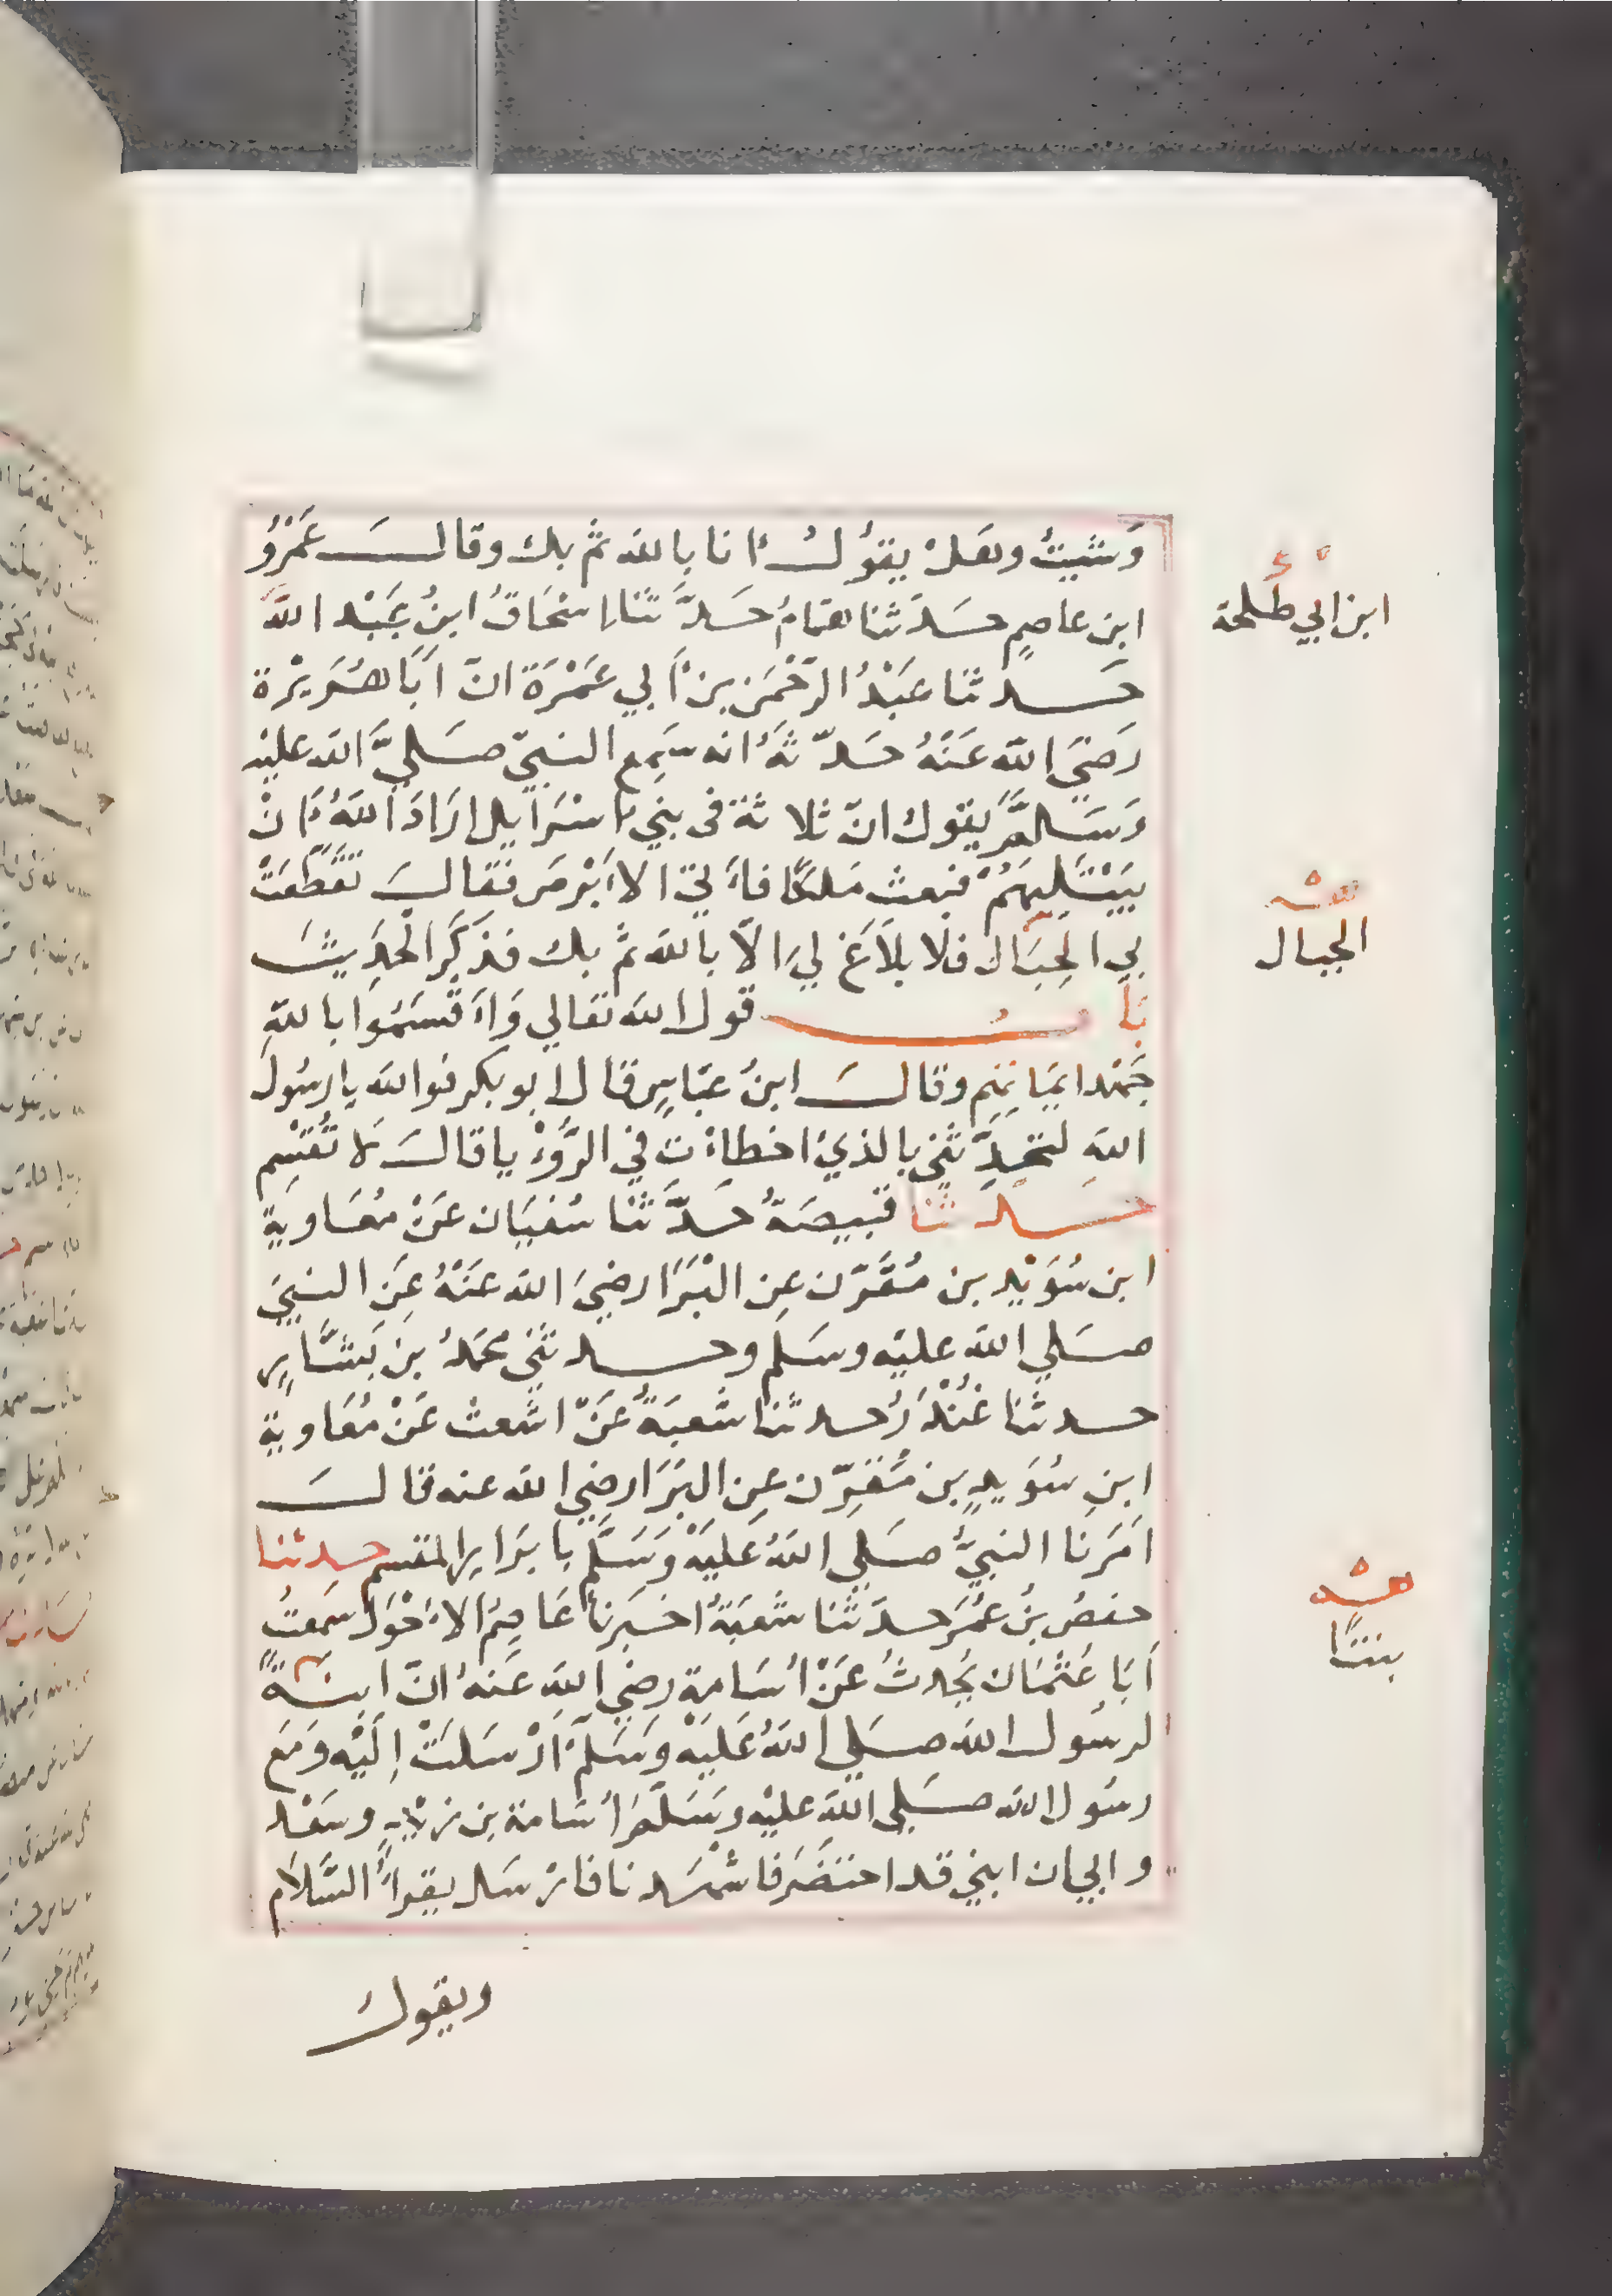 وَشئيتُ وهَلْ يقوُلُ أنا بالله ثمّ بك وقالَ عَمْرُو
ابن عاصمٍ حَدَثنا همّامُ حَدَّثنا اسْحَاقُ ابنُ عَبْد اللهَ
ابن ابي طلحة
حَدثنا عَبْدُ الرّحْمَن بن أَبي عَمْرَة انّ اَبَا هُرَيْرة
رَضيَ الله عَنْهُ حَدّثهُ انه سَمِع النبيّ صَلىَّ الله عليْه
وَسَلمَّ يَقول انّ ثلاثة فى بني اسْرَايل ارَادَ اللهُ أنْ
يَبْتَلِيهُمْ فبعث مَلكًا فأتى الاَبْرص فقالَ تقَطَعَتْ
بي الحِبَال فلا بلَاغَ ليَ الاّ بالله ثمّ بك فذكَرَ الْحدِيثَ
الجبال
بَابُ قول الله تعالي وَاَقْسَمُوا باللهِ
جَهْدَ ايمَانِهِم وقالَ ابنُ عبّاسٍ قال ابو بكر فوالله يا رسُولَ
اللهِ لتحَدِّثنّي بالذيْ اخطاْتَ في الرُّوْيا قالَ لا تُقْسِم
حَدثنا قبيصَةُ حَدَّثنا سُفيَان عَنْ مُعَاويةَ
ابن سُوَيْد بن مُقَرّن عن البْرَا رضيَ الله عنْهُ عَنِ النبيَ
صَلي الله عليَه وسَلم وحدثني محَمدُ بن بَشَّارٍ
حدثنا غُنْدَرُ حدثنا شعبَةُ عَنْ اشعث عَنْ مُعَاوية
ابنِ سُوَيدٍ بن مُقَرّن عن البَرَا رضي الله عنه قالَ
اَمَرَنا النبيُّ صَلي اللهُ عَليَهْ وَسَلَّم بابَرَارِ المقسم حدثنا
حفصُ بنُ عُمرَ حدَثنا شعبَةُ اخبَرنا عَاصِمُ الاَحْوَل سَمِعتُ
اَبَا عُثْمَان يُحدثُ عَنْ اُسَامة رضي الله عَنهُ انّ ابنةً
هـ
بنتًا
لرسُول الله صَلي اللهُ عَليَهْ وَسَلمَّ اَرْسَلتَْ إِليَْه وَمَع
رسُول الله صَلي الله عليْه وسَلَّمَ اُسَامة بن زيْدٍ وسَعْد
وابي ان ابني قد احتضَرَ فاشهَدنا فارْسَل يقرأُ السَّلَام
ويقولُ